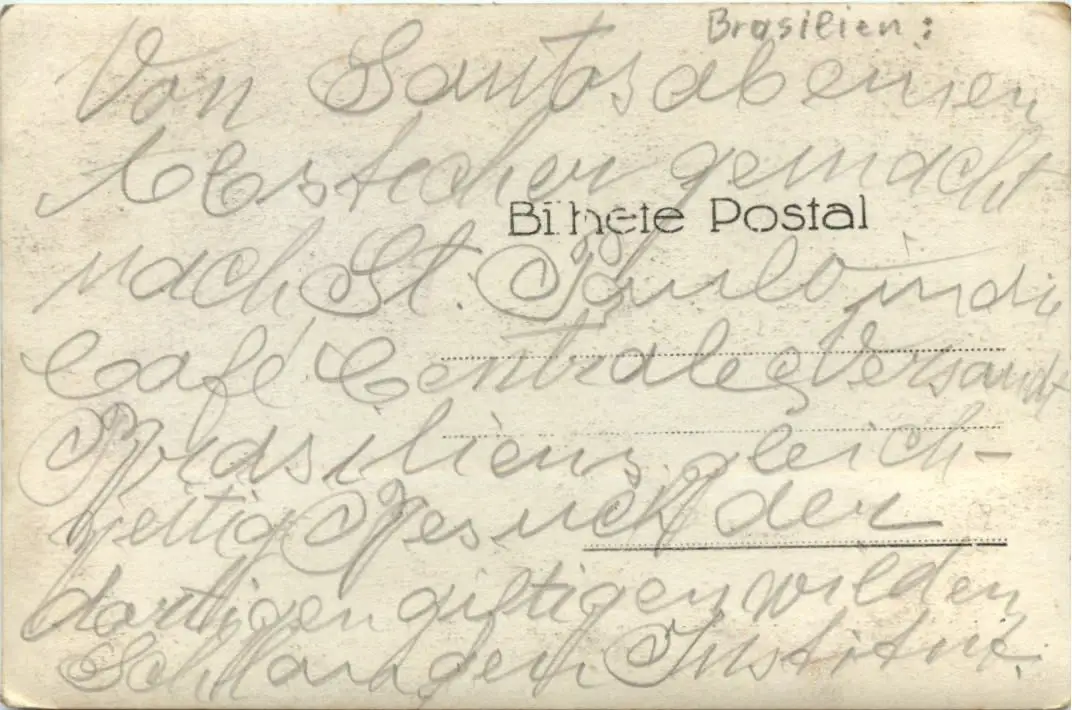 Brasilien:
Von Santos ab einen
Abstecher gemacht
nach St. Paulo in die
Café Centrale Versandt
Brasiliens. gleich-
zeitig Besuch der
dortigen giftigen wilden
Schlangen Institut.
Bilhete Postal